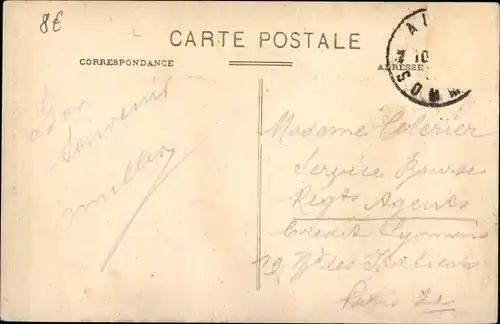 8€
CARTE POSTALE
CORRESPONDANCE
ADRESSE
Bon
Souvenir
Muller
Madame Celerier
Service Bourse
Regts Agents
Credit Lyonnais
19 Bd des Italiens
Paris 2e